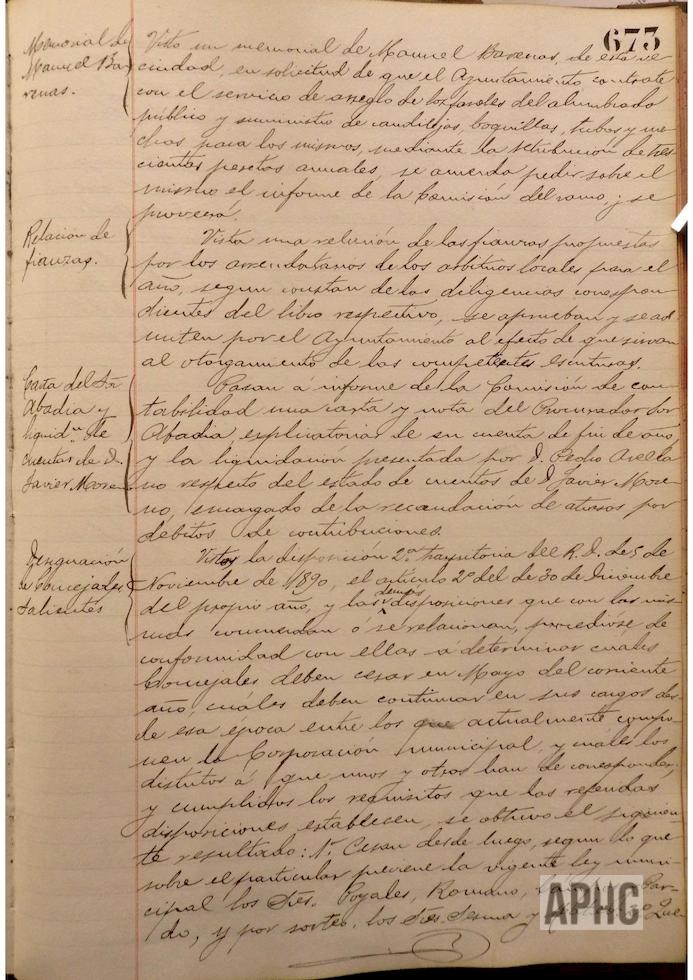 673
Memorial de
Manuel Bar
renas.
Visto un memorial de Manuel Barrenas, de esta ve
cindad, en solicitud de que el Ayuntamiento contrate
con el servicio de arreglo de los faroles del alumbrado
público y suministro de candilejas, boquillas, tubos y me
chas para los mismos, mediante la retribución de tres
cientas pesetas anuales, se acuerda pedir sobre el
mismo el informe de la Comisión del ramo, y se
proveerá.
Relacion de
fianzas.
Vista una relación de las fianzas propuestas
por los arrendatarios de los arbitrios locales para el
año, segun constan de las diligencias correspon
dientes del libro respectivo, se aprueban y se ad
miten por el Ayuntamiento al efecto de que sirvan
al otorgamiento de las competentes escrituras.
Carta del Sr.
Abadia y
liquidn. de
cuentas de D.
Javier Moreno
Pasan á informe de la Comisión de con
tabilidad una carta y nota del Procurador Sor
Abadia, explicatorias de su cuenta de fin de año
y la liquidación presentada por D. Pedro Arella
no respecto del estado de cuentas de D. Javier More
no, encargado de la recaudación de atrasos por
debitos de contribuciones.
Designación
de Concejales
salientes
Vistos la disposicion 2ª transitoria del R. D. de 5 de
Noviembre de 1890, el artículo 2º del de 30 de Diciembre
del propio año, y las demás disposiciones que con las mis
mas concuerdan ó se relacionan, procedióse, de
conformidad con ellas a determinar cuales
Concejales deben cesar en Mayo del corriente
año, cuáles deben continuar en sus cargos des
de esa época entre los que actualmente compo
nen la Corporación municipal, y cuáles los
distritos á que unos y otros han de corresponder,
y cumplidos los requisitos que las referidas
disposiciones establecen, se obtuvo el siguien
te resultado: 1º Cesan desde luego, segun lo que
sobre el particular previene la vigente ley muni
cipal los Sres. Poyales, Romano, Par
do, y por sorteo, los Sres. Sesma y 2º Que
APHC